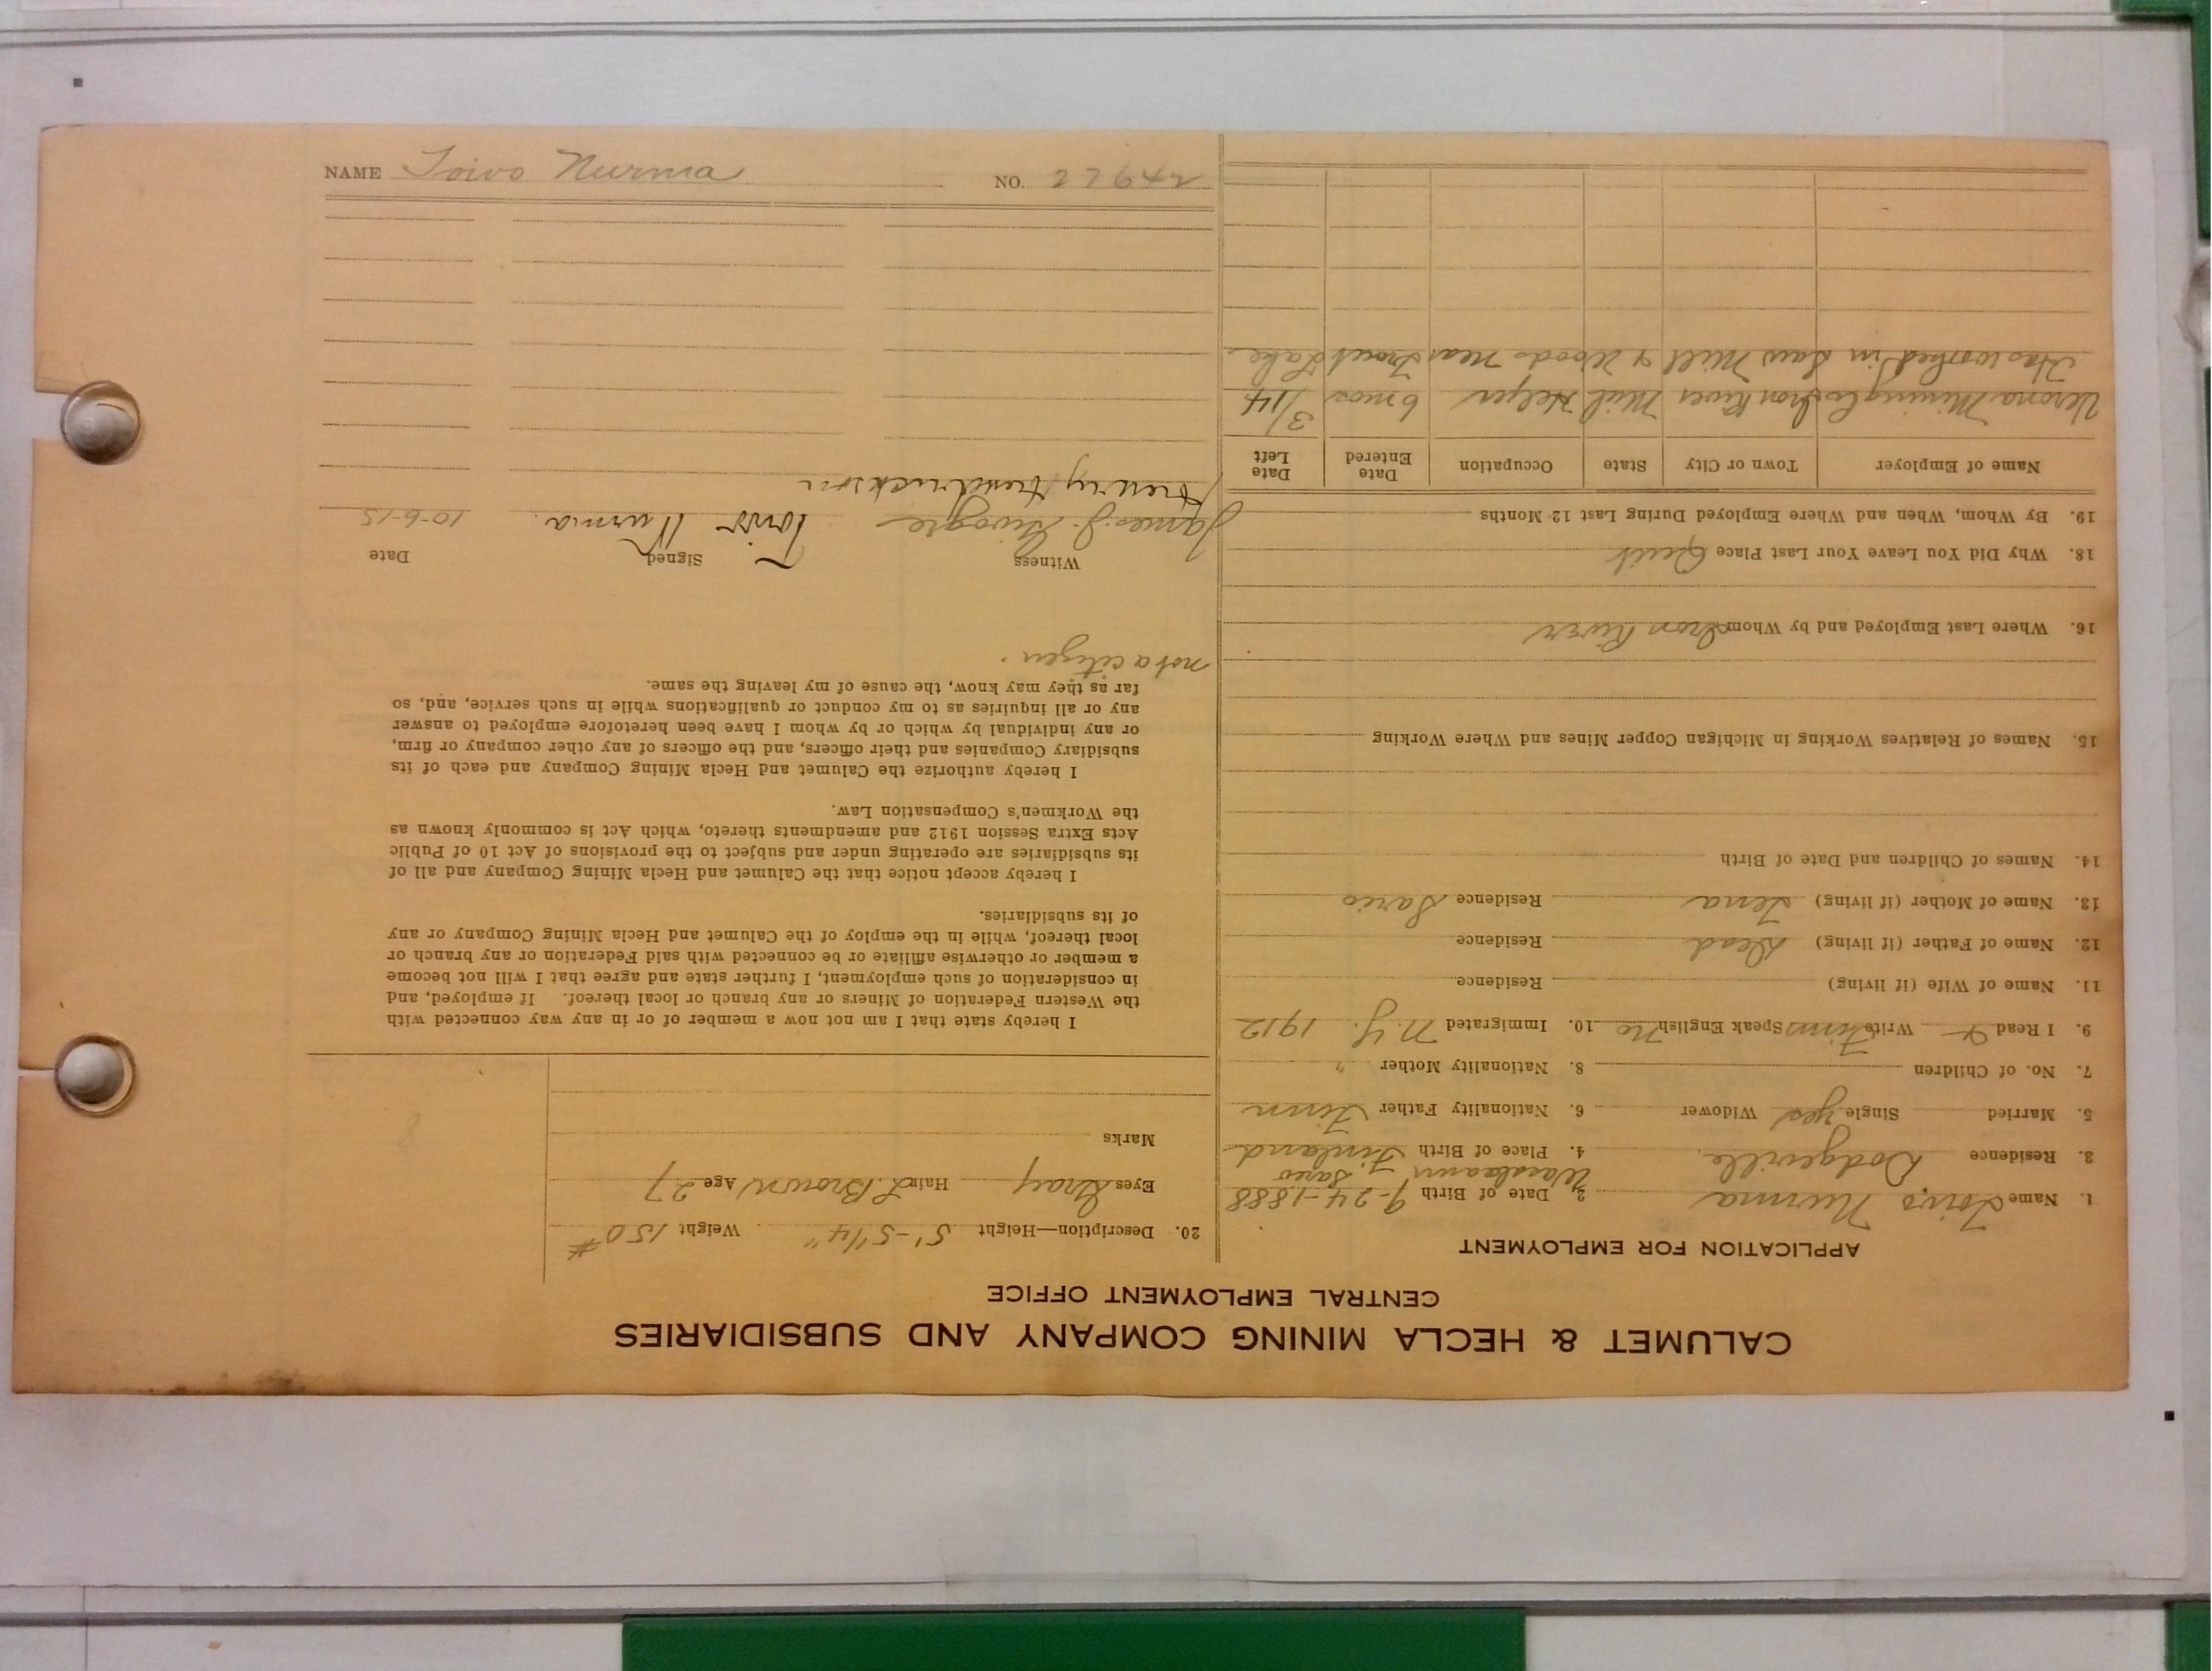 CALUMET & HECLA MINING COMPANY AND SUBSIDIARIES
CENTRAL EMPLOYMENT OFFICE
APPLICATION FOR EMPLOYMENT
1. Name Toivo Nurma 2. Date of Birth 9-24-1888
3. Residence Dodgeville. 4. Place of Birth Finland
5. Married Single yes Widower 6. Nationality Father Finn
7. No. of Children 8. Nationality Mother "
9. I Read & Write Finns Speak English no 10. Immigrated N.Y. 1912
11. Name of Wife (if living) Residence
12. Name of Father (if living) Dead Residence
13. Name of Mother (if living) Lena Residence
14. Names of Children and Date of Birth
15. Names of Relatives Working in Michigan Copper Mines and Where Working
16. Where Last Employed and by Whom Iron River
18. Why Did You Leave Your Last Place Quit
19. By Whom, When and Where Employed During Last 12 Months
Name of Employer Town or City State Occupation Date Entered Date Left
Verona Mining Co Iron River Mich Helper 6 mos 3/14
Has worked in Saw Mill & Woods near Trout Lake
20. Description—Height 5'-5 1/4" Weight 150#
Eyes Gray Hair L. Brown Age 27
Marks
I hereby state that I am not now a member of or in any way connected with
the Western Federation of Miners or any branch or local thereof. If employed, and
in consideration of such employment, I further state and agree that I will not become
a member or otherwise affiliate or be connected with said Federation or any branch or
local thereof, while in the employ of the Calumet and Hecla Mining Company or any
of its subsidiaries.
I hereby accept notice that the Calumet and Hecla Mining Company and all of
its subsidiaries are operating under and subject to the provisions of Act 10 of Public
Acts Extra Session 1912 and amendments thereto, which Act is commonly known as
the Workmen's Compensation Law.
I hereby authorize the Calumet and Hecla Mining Company and each of its
subsidiary Companies and their officers, and the officers of any other company or firm,
or any individual by which or by whom I have been heretofore employed to answer
any or all inquiries as to my conduct or qualifications while in such service, and, so
far as they may know, the cause of my leaving the same.
not a citizen.
Witness Signed Date
James J. Toivo Nurma. 10-6-15
Henry Hendrickson
NAME Toivo Nurma NO. 22642